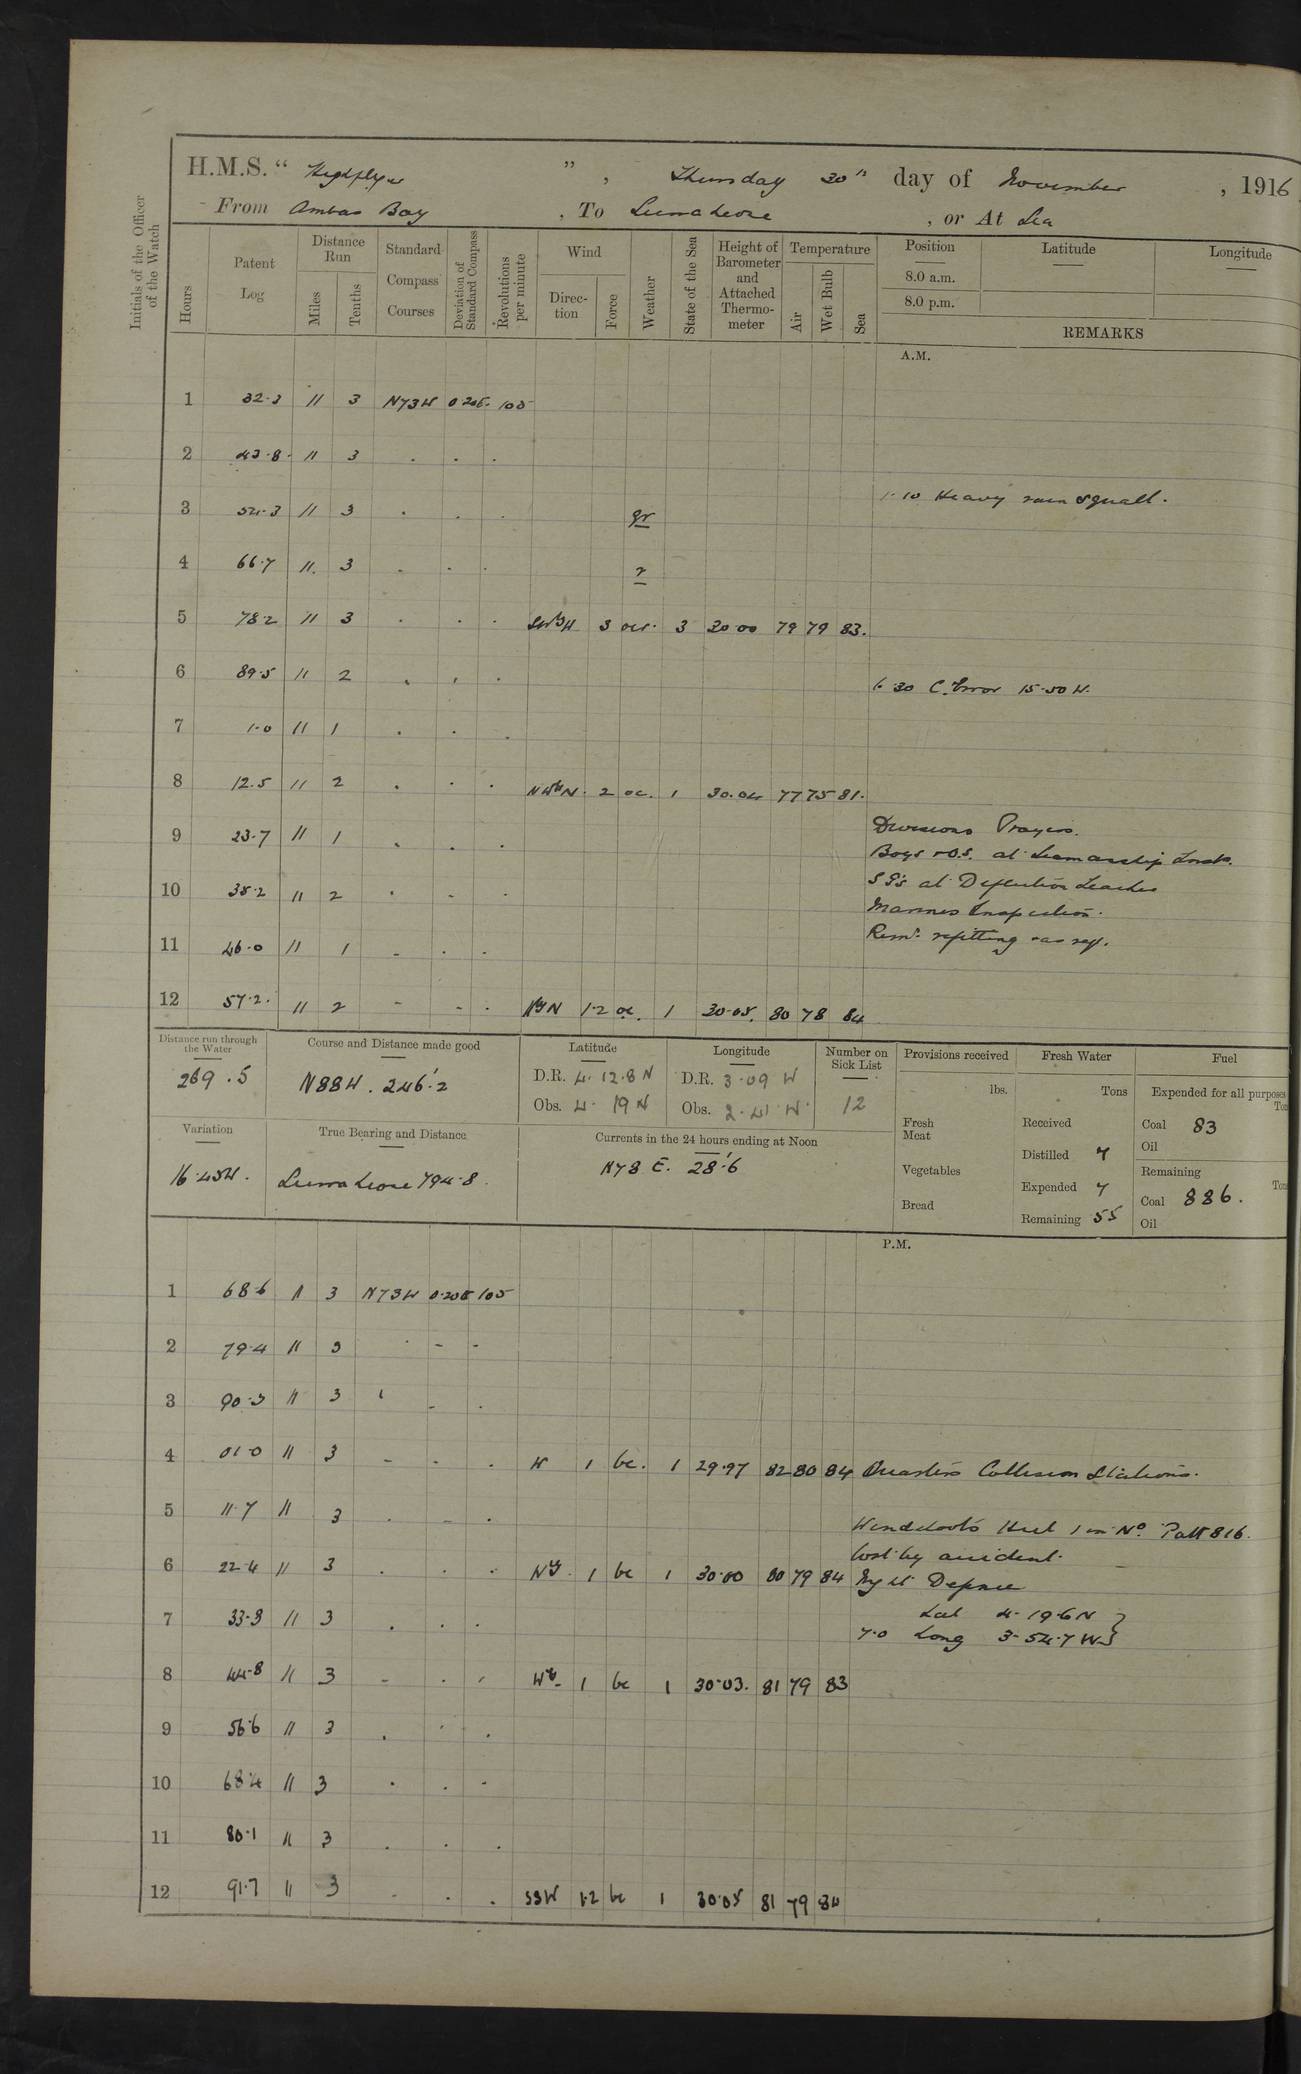 H.M.S. “ Highflyer ” , Thursday 30th day of November , 1916
From Ambas Bay , To Sierra Leone , or At Sea
Initials of the Officer of the Watch
Hours
Patent Log
Distance Run
Miles
Tenths
Standard Compass Courses
Deviation of Standard Compass
Revolutions per minute
Wind
Direction
Force
Weather
State of the Sea
Height of Barometer and Attached Thermometer
Temperature
Air
Wet Bulb
Sea
Position Latitude Longitude
8.0 a.m.
8.0 p.m.
REMARKS
A.M.
1 32.3 11 3 N73W 0.20E 105
2 43.8 11 3 . . .
1.10 Heavy rain squall.
3 54.3 11 3 . . . qr
4 66.7 11 3 . . . r
5 78.2 11 3 . . . SWbW 3 ocr. 3 30.00 79 79 83.
6 89.5 11 2 . . .
6.30 C. Error 15.50 W.
7 1.0 11 1 . . .
8 12.5 11 2 . . . NWbN. 2 oc. 1 30.04 77 75 81.
Divisions Prayers.
9 23.7 11 1 . . .
Boys & O.S. at Seamanship Inst.
10 35.2 11 2 . - .
S.G's at Deflection Teacher
Marines Inspection.
11 46.0 11 1 - . .
Remr. refitting & as req.
12 57.2 11 2 - - . NbyN 1.2 oc. 1 30.05. 80 78 84
Distance run through the Water
269.5
Course and Distance made good
N88W. 246'.2
Latitude
D.R. 4. 12.8 N
Obs. 4. 19 N
Longitude
D.R. 3.09 W
Obs. 2.41 W.
Number on Sick List
12
Variation
16.45W.
True Bearing and Distance
Sierra Leone 794.8.
Currents in the 24 hours ending at Noon
N78 E. 28'.6
Provisions received
lbs.
Fresh Meat
Vegetables
Bread
Fresh Water
Tons
Received
Distilled 7
Expended 7
Remaining 55
Fuel
Expended for all purposes
Coal 83
Oil
Remaining
Coal 886.
Oil
P.M.
1 68.6 11 3 N73W 0.20E 105
2 79.4 11 3 . - -
3 90.3 11 3 . - .
4 01.0 11 3 - - . W 1 bc. 1 29.97 82 80 84 Quarters Collision Stations.
5 11.7 11 3 . - .
Windsails Heel 1 in No. Patt 816.
lost by accident.
6 22.4 11 3 . . . Nly. 1 bc 1 30.00 80 79 84 Night Defence
7 33.3 11 3 . . .
Lat 4.19.6 N }
7.0 Long 3.54.7 W }
8 44.8 11 3 - . . Wly. 1 bc 1 30.03. 81 79 83
9 56.6 11 3 . . .
10 68.4 11 3 . . -
11 80.1 11 3 . . .
12 91.7 11 3 - . . SSW 1.2 bc 1 30.05 81 79 84